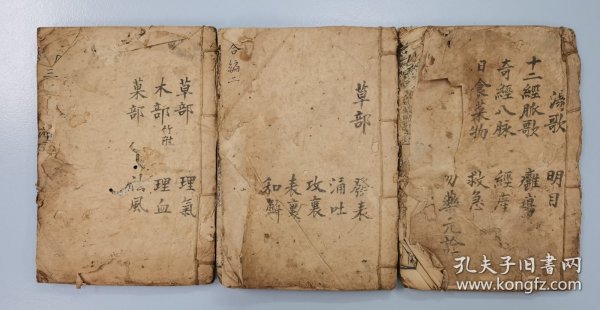 湯歌 明目
十二經脈歌 癰瘍
奇經八脉 經産
日食菜物 救急
勿藥元詮
合編二
草部 發表
涌吐
攻裏
表裏
和解
三
草部 理氣
木部竹附 理血
菓部 祛風
孔夫子旧书网
www.kongfz.com